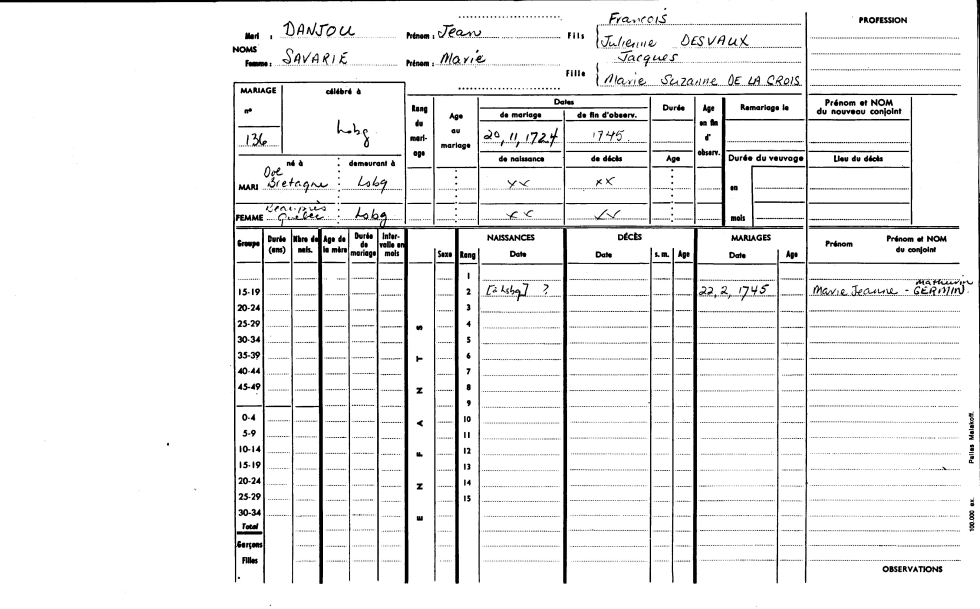 François
PROFESSION
Mari : DANJOU Prénom : Jean Fils Julienne DESVAUX
NOMS
Jacques
Femme : SAVARIE Prénom : Marie
Fille Marie Suzanne DE LA CROIS
MARIAGE célébré à
n°
136 Lsbg
Rang du mari-age
Age au mariage
Dates
de mariage de fin d'observ.
20, 11, 1724 1745
de naissance de décès
Durée
Age
Age en fin d' observ.
Remariage le
Prénom et NOM du nouveau conjoint
Durée du veuvage
Lieu du décès
né à demeurant à
Dol
MARI Bretagne Lsbg xx xx
en
Beauprès
FEMME Québec Lsbg xx xx
mois
Groupe
Durée (ans)
Nbre de nais.
Age de la mère
Durée de mariage
Inter-valle en mois
ENFANTS
Sexe
Rang
NAISSANCES
Date
DÉCÈS
Date
s. m.
Age
MARIAGES
Date
Age
Prénom
Prénom et NOM du conjoint
1
Mathurin
15-19 2 [à Lsbg] ? 22, 2, 1745 Marie Jeanne - GERMIN
20-24 3
25-29 4
30-34 5
35-39 6
40-44 7
45-49 8
9
0-4 10
5-9 11
10-14 12
15-19 13
20-24 14
25-29 15
30-34
Total
Garçons
Filles
OBSERVATIONS
100.000 ex. Pallas Malakoff.